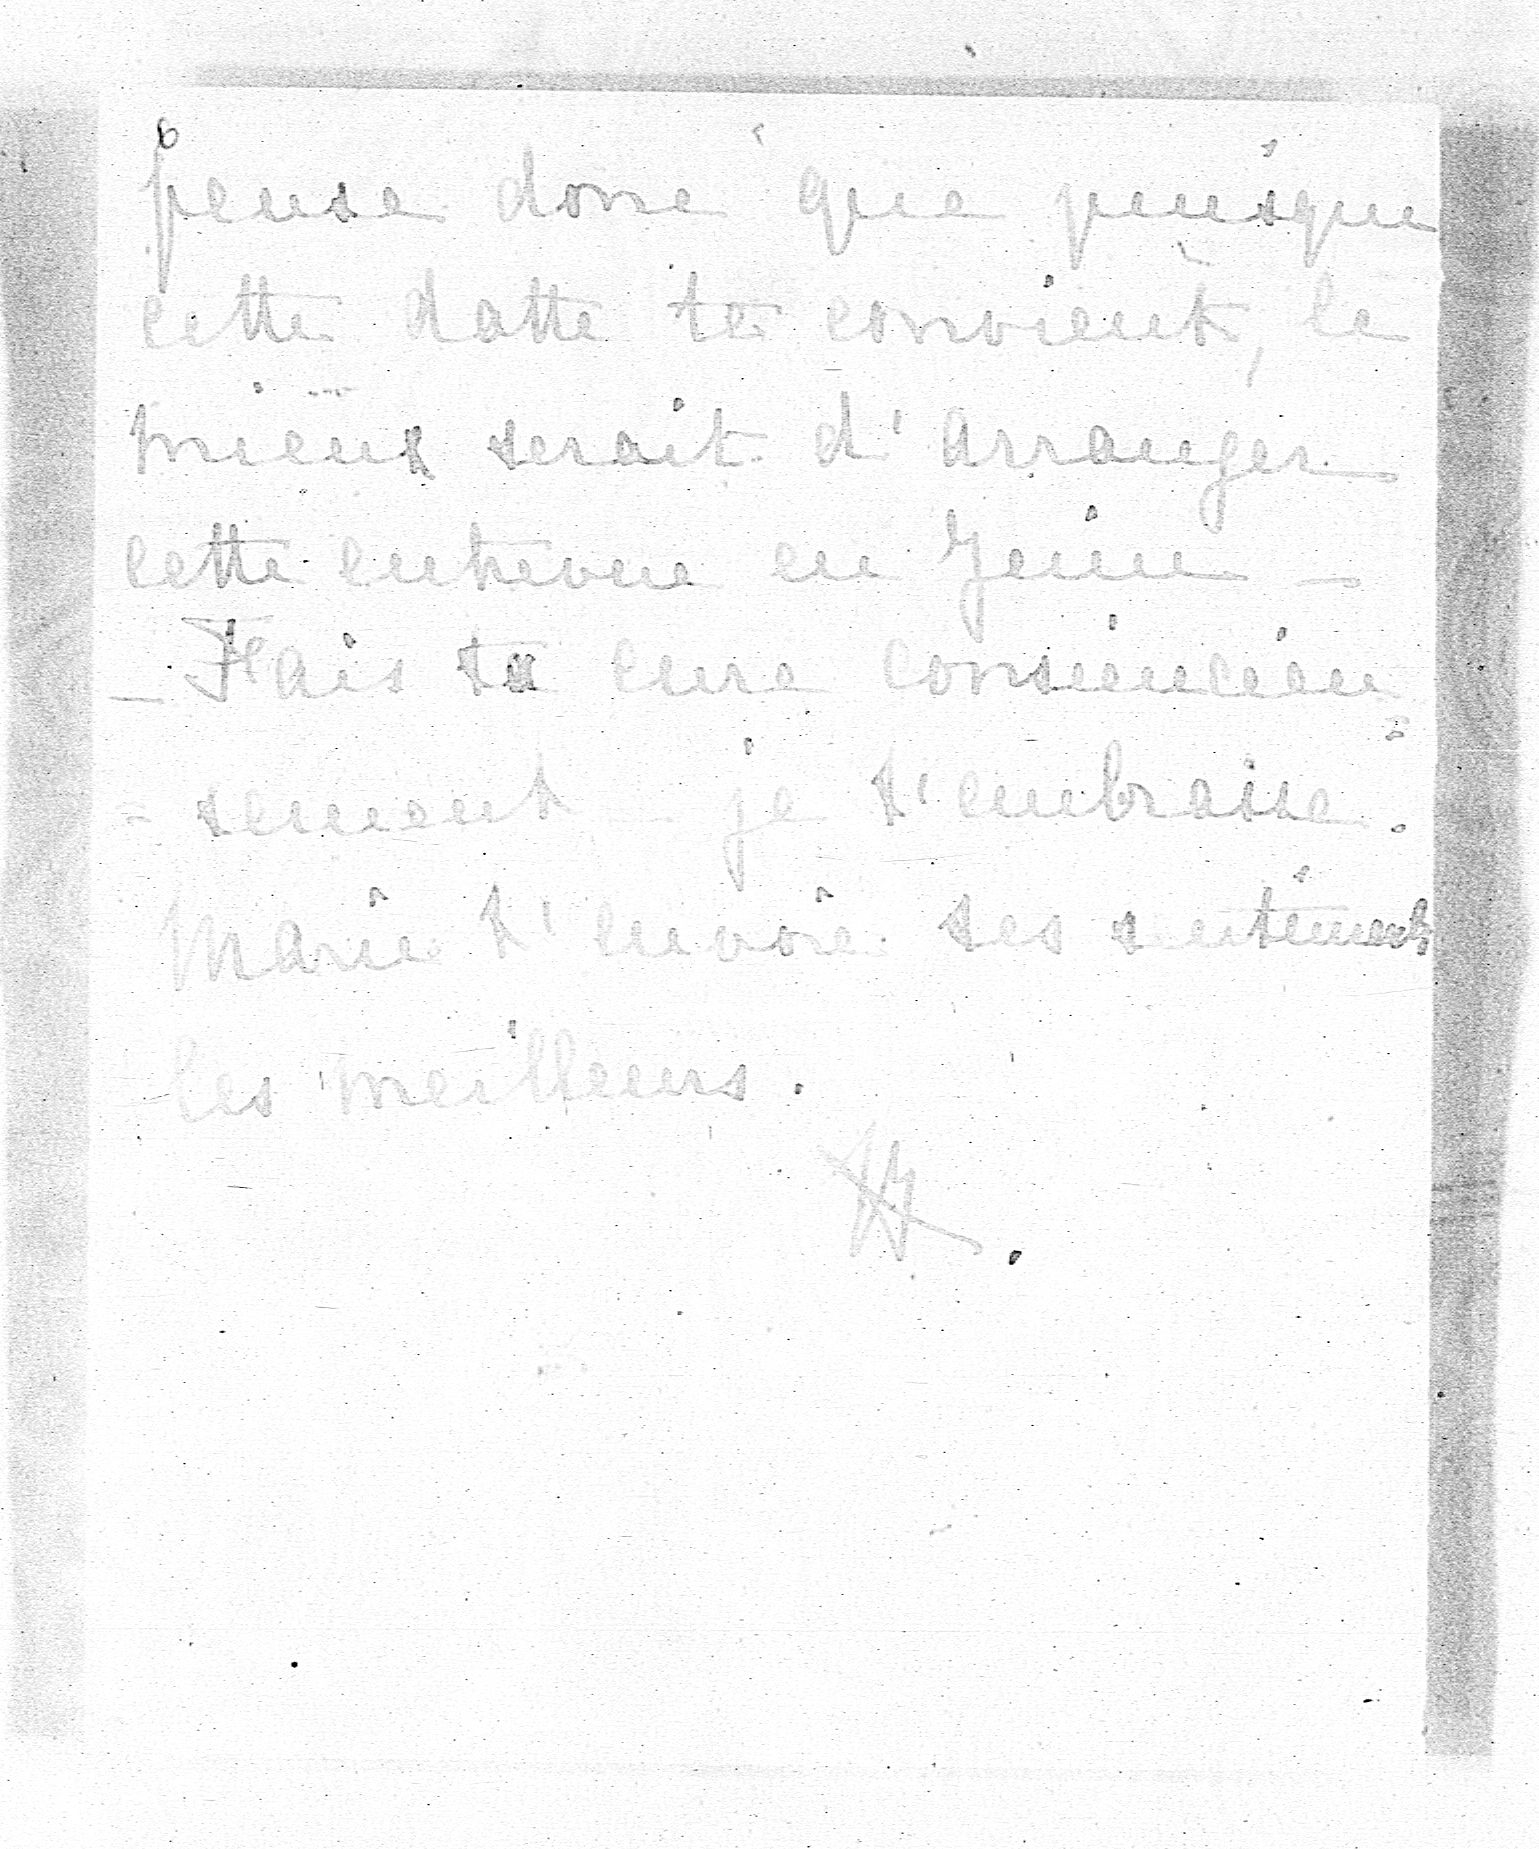 pense donc que puisque
cette datte te convient, le
mieux serait d'arranger
cette entrevue en Juin –
– Fais ta cure consciencieu
= sement – je t'embrasse.
Marie t'envoie ses sentiments
les meilleurs.